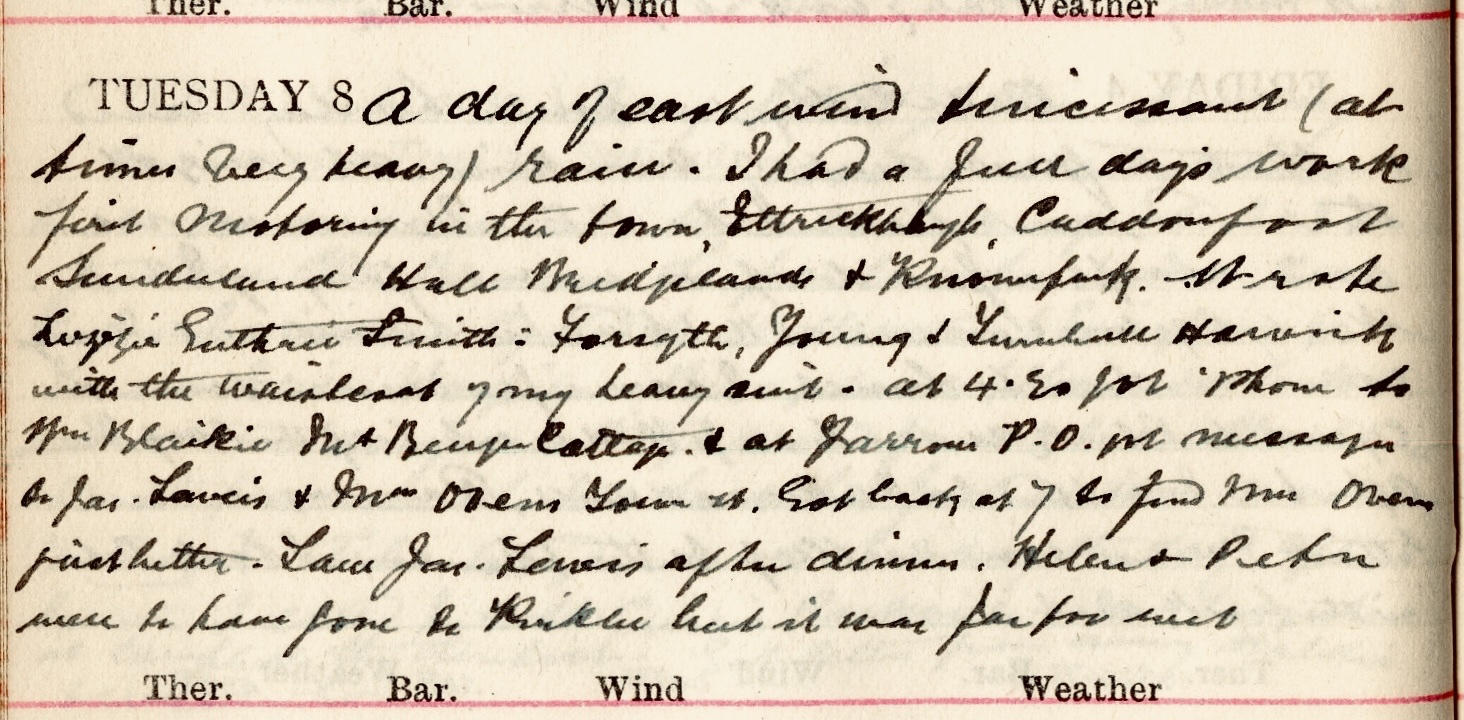 Ther. Bar. Wind Weather
TUESDAY 8 A day of east wind & incessant (at
times very heavy) rain. I had a full day's work
first motoring in the town, Ettrickhaugh, Caddonfoot
Sunderland Hall Bridgelands & Knowepark. Wrote
Lizzie Guthrie Smith: Forsyth, Young & Turnbull Hawick
with the waistcoat of my heavy suit. at 4.30 got 'phone to
Wm Blaikie Mt Benger Cottage. & at Yarrow P.O. got message
to Jas. Lewis & Mrs Ovens Tower st. Got back at 7 to find Mrs Ovens
just better. Saw Jas. Lewis after dinner. Helen & Peter
were to have gone to Kirklee but it was far too wet
Ther. Bar. Wind Weather